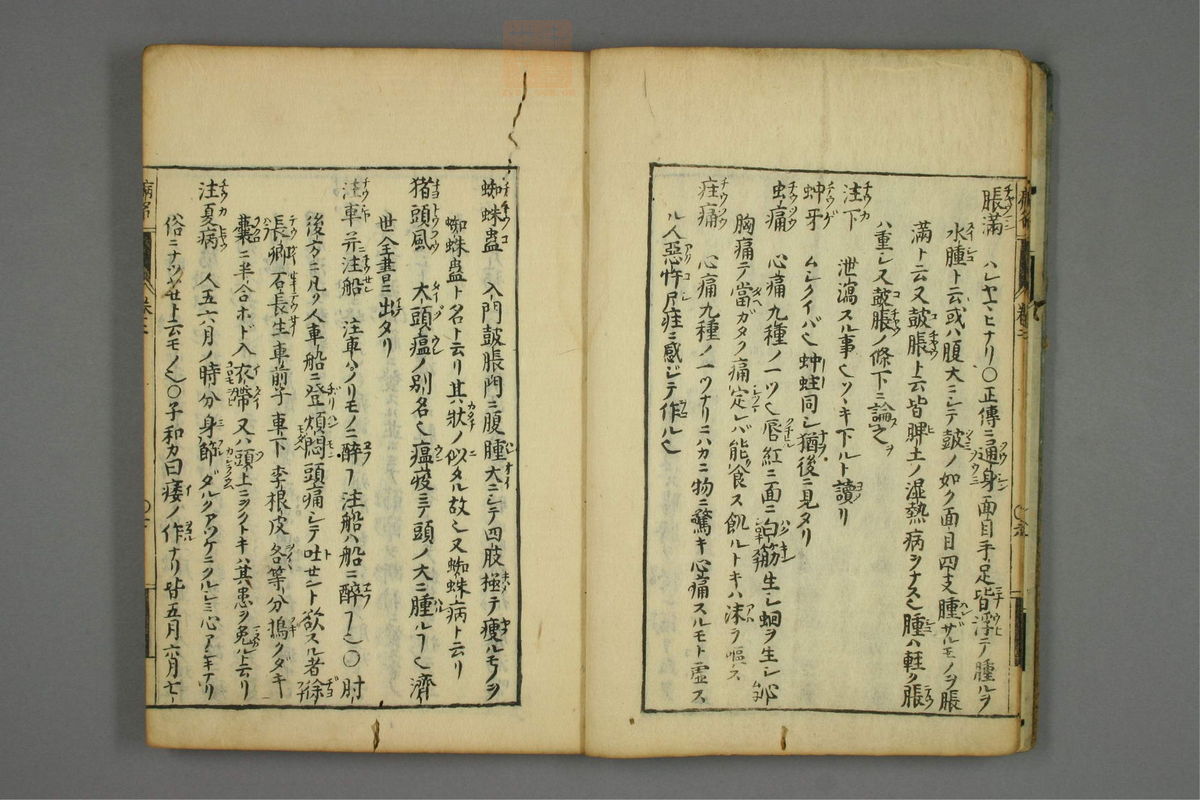 脹滿 ハレヤマヒナリ〇正傳ニ通身面目手足皆浮テ腫ルヲ
水腫ト云或ハ腹大ニシテ皷ノ如ク面目四支腫ザルモノヲ脹
滿ト云又皷脹ト云皆脾土ノ湿熱病ヲナス腫ハ軽ク脹
ハ重シ又皷脹ノ條下ニ論之
注下 泄瀉スル事ソヽキ下ルト讀リ
蚛牙 ムシクイバ 蚛蛀同シ猶後ニ見タリ
虫痛 心痛九種ノ一ツ 唇紅ニ面ニ白筋生シ蛔ヲ生シ心
胸痛テ當ガタク痛定レバ能食ス飢ルトキハ沫ヲ嘔ス
疰痛 心痛九種ノ一ツナリニハカニ物ニ驚キ心痛スルモト虚ス
ル人惡忤尸疰ニ感ジテ作ル
蜘蛛蠱 入門皷脹門ニ腹腫大ニシテ四肢極テ瘦ルモノヲ
蜘蛛蠱ト名ト云リ其状ノ似タル故 又蜘蛛病ト云リ
猪頭風 大頭瘟ノ別名 瘟疫ニテ頭ノ大ニ腫ルフ 濟
世全書ニ出タリ
注車并注船 注車ハノリモノニ醉フ注船ハ船ニ醉フ 〇肘
後方ニ凡ソ人車船ニ登煩悶頭痛シテ吐セント欲スル者徐
長卿石長生車前子車下李根皮各等分搗クダキ
囊ニ半合ホド入衣帶又ハ頭上ニツクトキハ其患ヲ免ルト云リ
注夏病 人五六月ノ時分身節ダルク ニクルシミ心 ナリ
俗ニナツヤセト云モノ 〇子和カ曰痿ノ作ナリ皆五月六月七